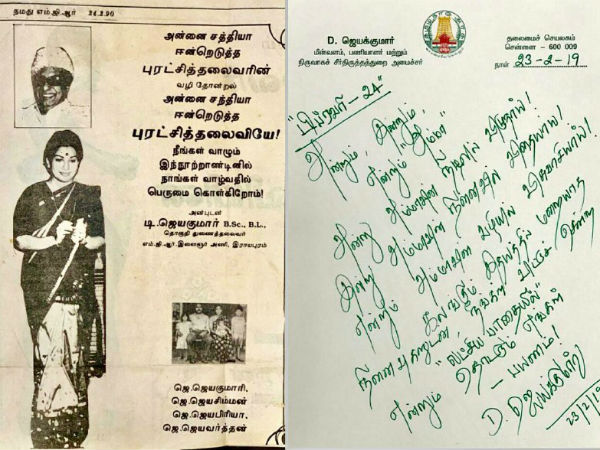 நமது எம்.ஜி.ஆர் 24.2.90
அன்னை சத்தியா
ஈன்றெடுத்த
புரட்சித்தலைவரின்
வழி தோன்றல்
அன்னை சந்தியா
ஈன்றெடுத்த
புரட்சித்தலைவியே!
நீங்கள் வாழும்
இந்நூற்றாண்டினில்
நாங்கள் வாழ்வதில்
பெருமை கொள்கிறோம்!
அன்புடன்
டி.ஜெயகுமார் B.Sc., B.L.,
தொகுதி துணைத்தலைவர்
எம்.ஜி.ஆர்.இளைஞர் அணி, இராயபுரம்
ஜெ.ஜெயகுமாரி,
ஜெ.ஜெயசிம்மன்
ஜெ.ஜெயபிரியா,
ஜெ.ஜெயவர்த்தன்
D. ஜெயக்குமார்
மீன்வளம், பணியாளர் மற்றும்
நிருவாகச் சீர்திருத்தத்துறை அமைச்சர்
தலைமைச் செயலகம்
சென்னை - 600 009
நாள் 23-2-19
"பிப்ரவரி - 24"
அன்றும், இன்றும்,
என்றும் "அம்மா"
அன்று அம்மாவின் நிழலில்
இன்று அம்மாவின் நினைவில்
என்றும் அம்மாவின் வழியில்
நினைவுகளுடன்
"லட்சிய பாதையில்"
என்றும் தொடரும் எங்கள்
- பயணம்!
D. ஜெயக்குமார்
23/2/19